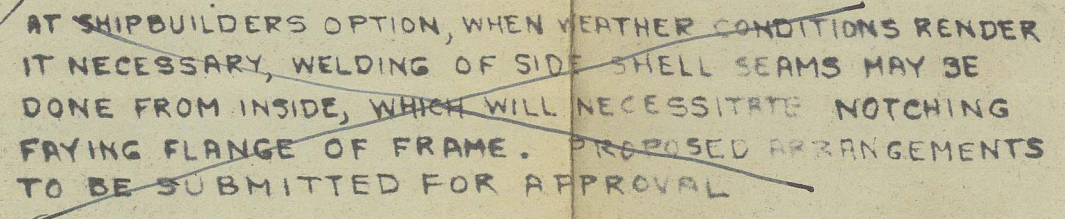 AT SHIPBUILDERS OPTION, WHEN WEATHER CONDITIONS RENDER
IT NECESSARY, WELDING OF SIDE SHELL SEAMS MAY BE
DONE FROM INSIDE, WHICH WILL NECESSITATE NOTCHING
FAYING FLANGE OF FRAME. PROPOSED ARRANGEMENTS
TO BE SUBMITTED FOR APPROVAL